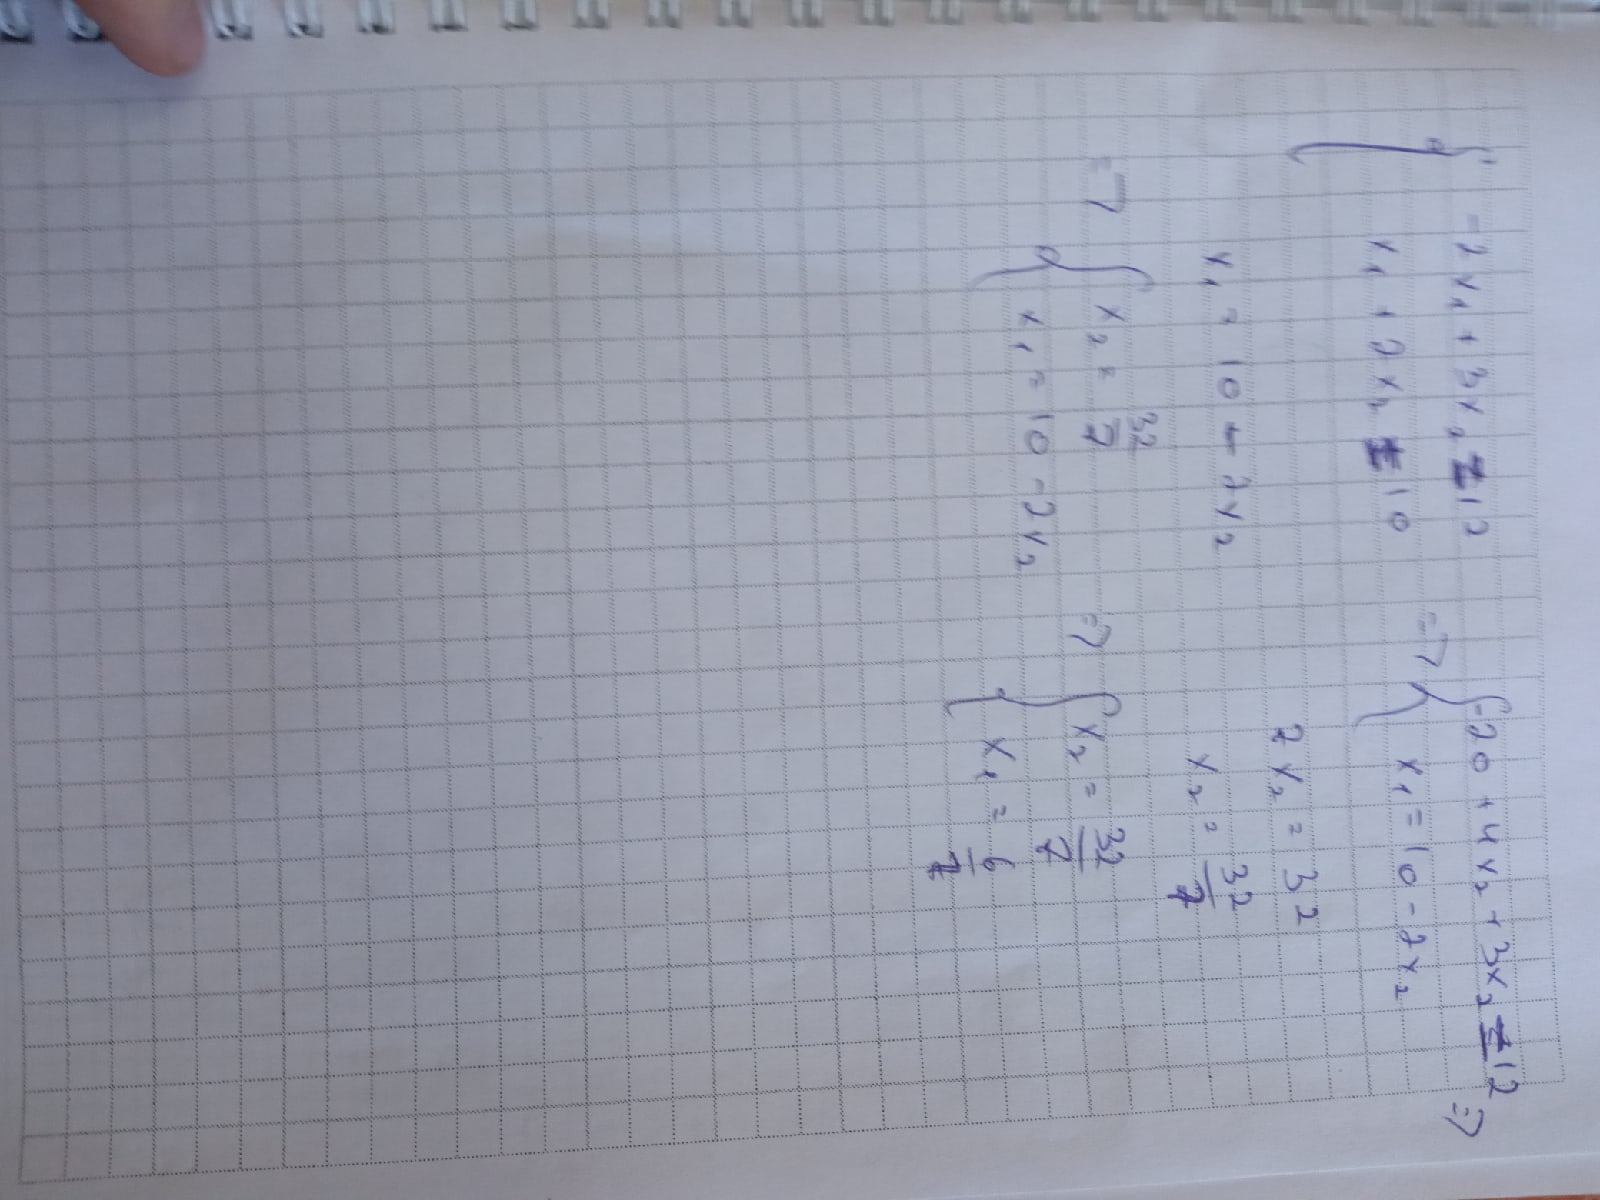 { -2x₁ + 3x₂ = 12
x₁ + 2x₂ = 10
x₁ = 10 - 2x₂
=> { -20 + 4x₂ + 3x₂ = 12 =>
x₁ = 10 - 2x₂
7x₂ = 32
x₂ = 32/7
=> { x₂ = 32/7
x₁ = 10 - 2x₂
=> { x₂ = 32/7
x₁ = 6/7